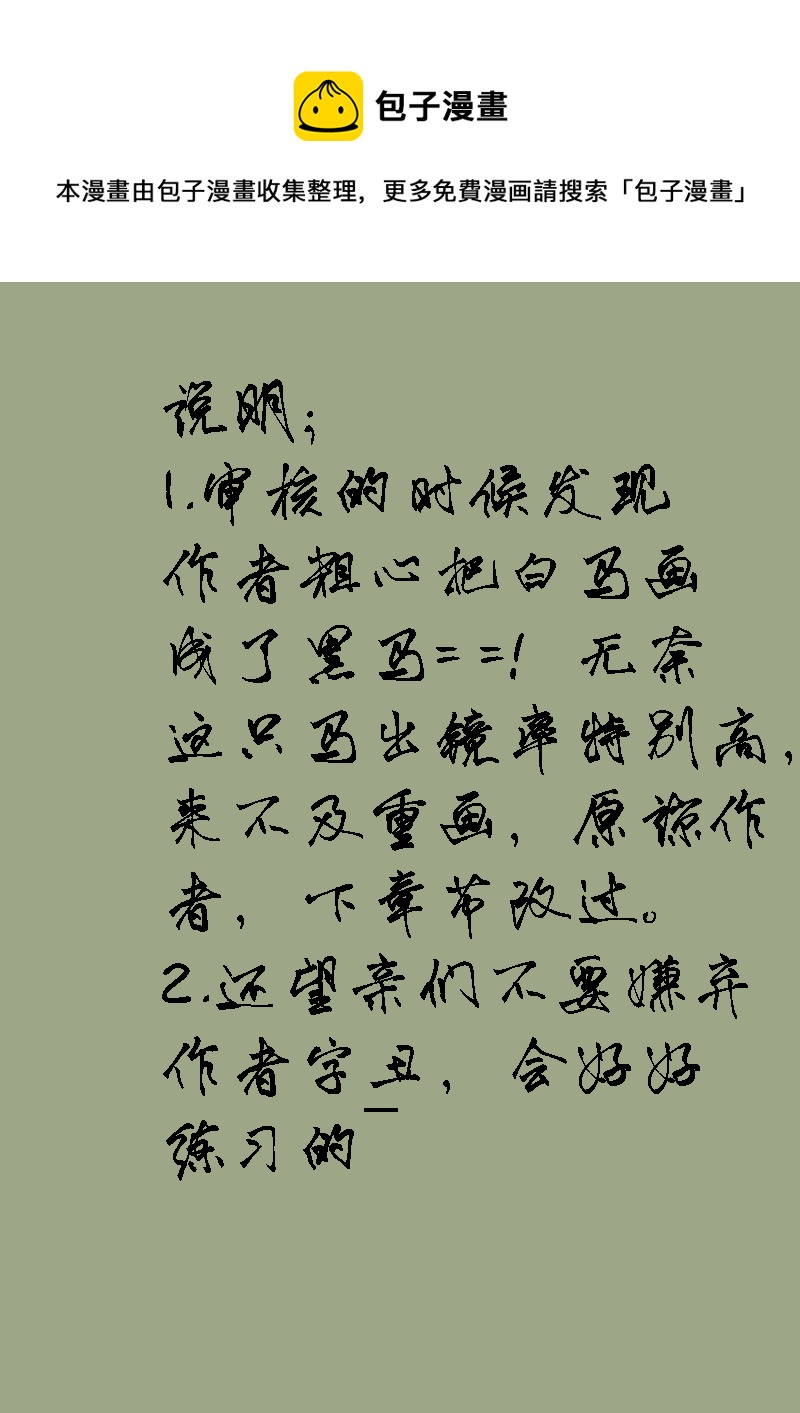 包子漫畫
本漫畫由包子漫畫收集整理，更多免費漫画請搜索「包子漫畫」
说明；
1.审核的时候发现
作者粗心把白马画
成了黑马==！ 无奈
这只马出镜率特别高，
来不及重画，原谅作
者，下章节改过。
2.还望亲们不要嫌弃
作者字丑，会好好
练习的